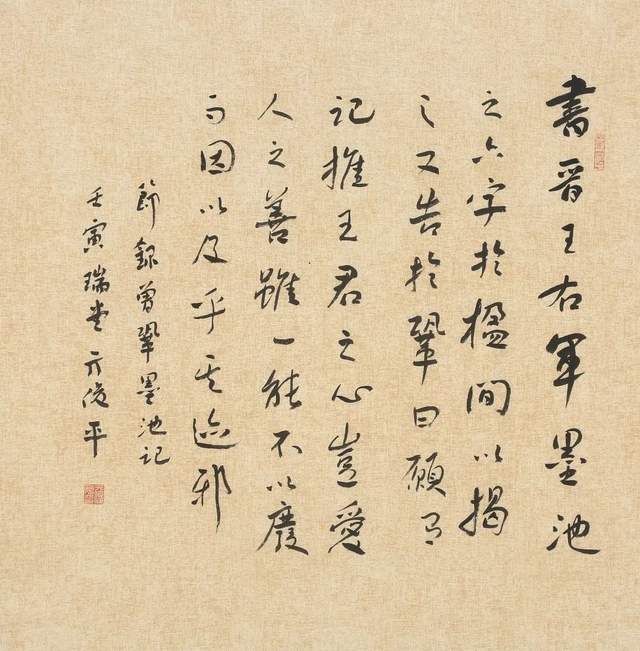 書晋王右軍墨池
之六字於楹間以揭
之又告於鞏曰願有
記推王君之心豈愛
人之善雖一能不以廢
而因以及乎其迹邪
節録曾鞏墨池記
壬寅瑞俊平